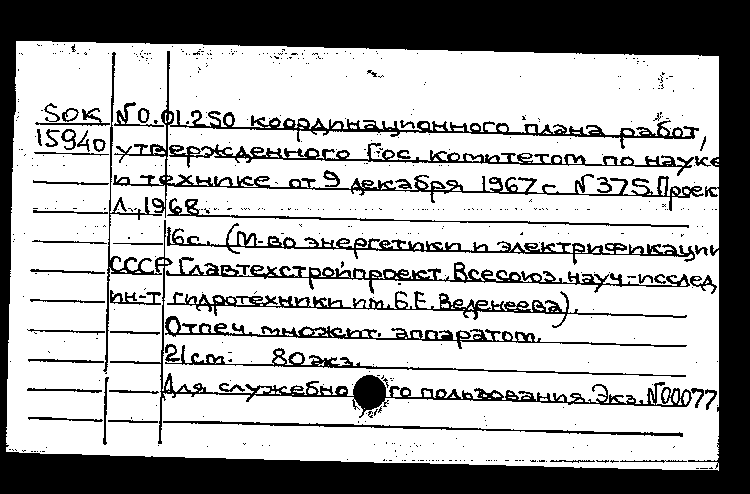 SOK №0.01.250 координационного плана работ,
15940 утвержденного Гос. комитетом по науке
и технике от 9 декабря 1967 г №375. Проект
Л., 1968.
16с. (М-во энергетики и электрификации
СССР. Главтехстройпроект. Всесоюз. науч.-исслед.
ин-т гидротехники им. Б.Е. Веденеева).
Отпеч. множит. аппаратом.
21см. 80экз.
Для служебного пользования. Экз. №00077.